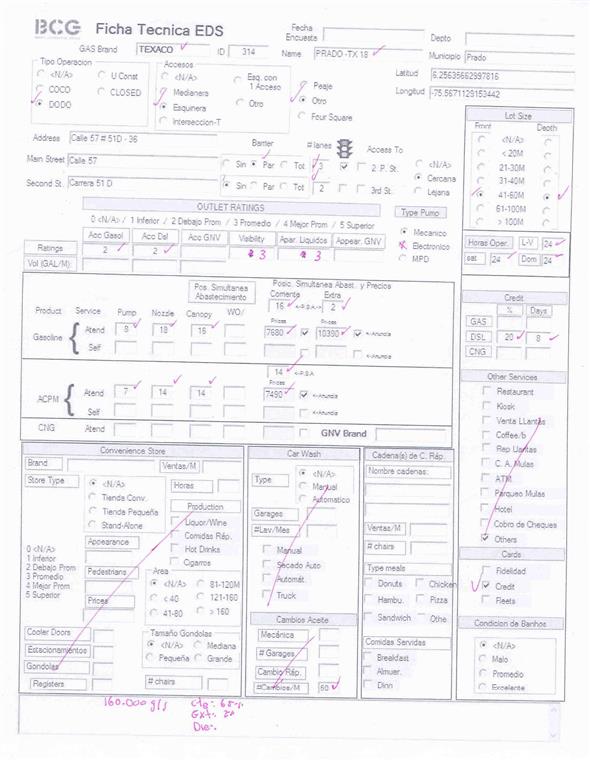 BCG Ficha Tecnica EDS
Fecha Encuesta
Depto
GAS Brand TEXACO ID 314 Name PRADO -TX 18 Municipio Prado
Tipo Operacion
<N/A> U Const
COCO CLOSED
DODO
Accesos
<N/A> Esq. con 1 Acceso
Medianera
Esquinera Otro
Interseccion-T
Peaje
Otro
Four Square
Latitud 6.25635662997816
Longitud -75.5671129153442
Lot Size
Front Depth
<N/A>
< 20M
21-30M
31-40M
41-60M
61-100M
> 100M
Address Calle 57 # 51D - 36
Barrier # lanes Access To
Main Street Calle 57 Sin Par Tot 3 2 P. St.
Second St. Carrera 51 D Sin Par Tot 2 3rd St.
<N/A>
Cercana
Lejana
OUTLET RATINGS
0 <N/A> / 1 Inferior / 2 Debajo Prom / 3 Promedio / 4 Mejor Prom / 5 Superior
Acc Gasol Acc Dsl Acc GNV Visibility Apar. Liquidos Appear. GNV
Ratings 2 2 3 3
Vol (GAL/M):
Type Pump
Mecanico
Electronico
MPD
Horas Oper. L-V 24
sat 24 Dom 24
Pos. Simultanea Abastecimiento
Posic. Simultanea Abast. y Precios
Corriente Extra
16 <-P.S.A-> 2
Product Service Pump Nozzle Canopy WO/
Prices Prices
Gasoline Atend 8 18 16 7680 10390 <-Anuncia
Self <-Anuncia
14 <-P.S.A
Prices
ACPM Atend 7 14 14 7490 <-Anuncia
Self <-Anuncia
CNG Atend GNV Brand
Credit
% Days
GAS
DSL 20 8
CNG
Other Services
Restaurant
Kiosk
Venta LLantas
Coffee/b
Rep Llantas
C. A. Mulas
ATM
Parqueo Mulas
Hotel
Cobro de Cheques
Others
Cards
Fidelidad
Credit
Fleets
Condicion de Banhos
<N/A>
Malo
Promedio
Excelente
Convenience Store
Brand Ventas/M
Store Type
<N/A>
Tienda Conv.
Tienda Pequeña
Stand-Alone
Horas
Production
Liquor/Wine
Comidas Ráp.
Hot Drinks
Cigarros
Appearance
0 <N/A>
1 Inferior
2 Debajo Prom
3 Promedio
4 Mejor Prom
5 Superior
Pedestrians
Prices
Area
<N/A> 81-120M
< 40 121-160
41-80 > 160
Cooler Doors
Estacionamientos
Gondolas
Registers
Tamaño Gondolas
<N/A> Mediana
Pequeña Grande
# chairs
Car Wash
Type
<N/A>
Manual
Automatico
Garages
#Lav/Mes
Manual
Secado Auto
Automát.
Truck
Cambios Aceite
Mecánica
# Garages
Cambio Ráp.
#Cambios/M 60
Cadena(s) de C. Ráp.
Nombre cadenas:
Ventas/M
# chairs
Type meals
Donuts Chicken
Hambu. Pizza
Sandwich Othe
Comidas Servidas
Breakfast
Almuer.
Dinn
160.000 gls